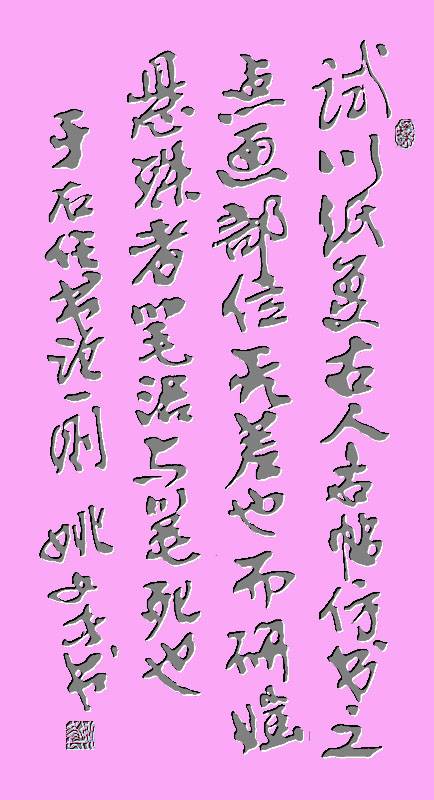 试以纸复古人古帖仿书之
点画部位无差也而研媸
悬殊者笔活与笔死也
于右任书论一则 姚 书